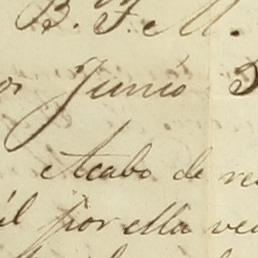 B. F. M.
Junio
Acabo de re
il por ella ve